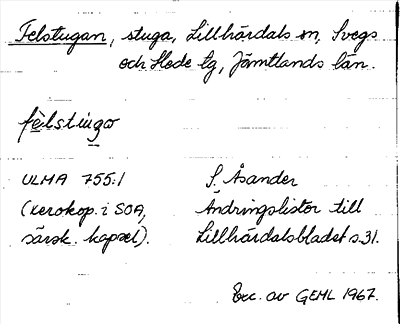 Felstugan, stuga, Lillhärdals sn, Svegs
och Hede tg, Jämtlands län.
fèlstiu̲go
ULMA 755:1
S. Åsander
(xerokop. i SOA,
Ändringslistor till
särsk. kapsel).
Lillhärdalsbladet s.31.
Exc. av GEHL 1967.